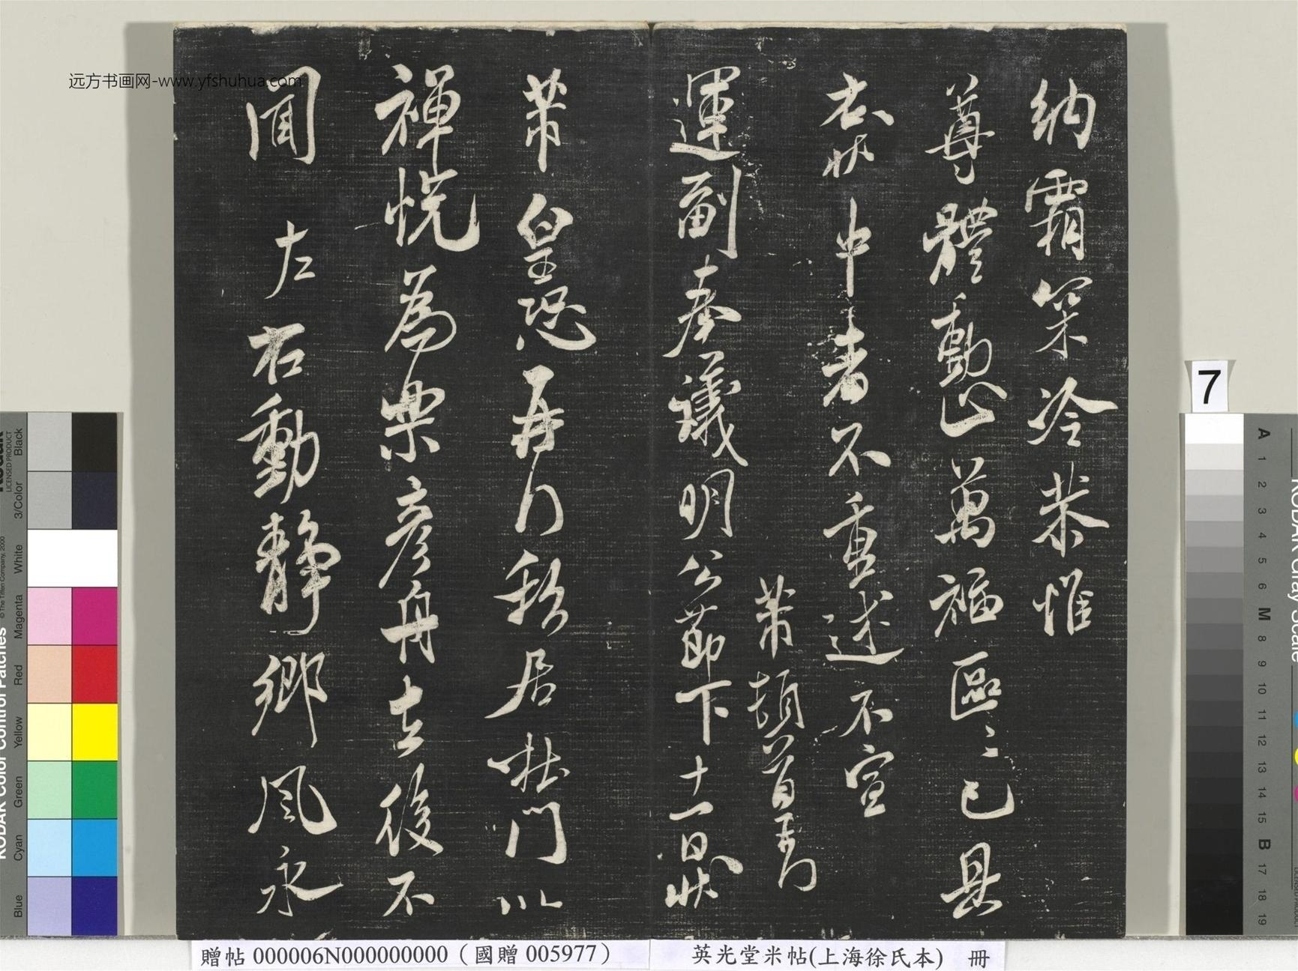 纳霜笨冷恭惟
尊體動止萬福區〻已具
右状中者不重述不宣
芾頓首再拜
運副奉議明公節下十一日状
芾皇恐再拜秋居杜門以
禅悦為樂彦舟去後不
聞左右動静鄉風永
远方书画网-www.yfshuhua.com
7
贈帖 000006N000000000(國贈 005977)
英光堂米帖(上海徐氏本) 冊
Black
3/Color
White
Magenta
Red
Yellow
Green
Cyan
Blue
KODAK Color Control Patches
KODAK Gray Scale
A 1 2 3 4 5 6 M 8 9 10 11 12 13 14 15 B 17 18 19